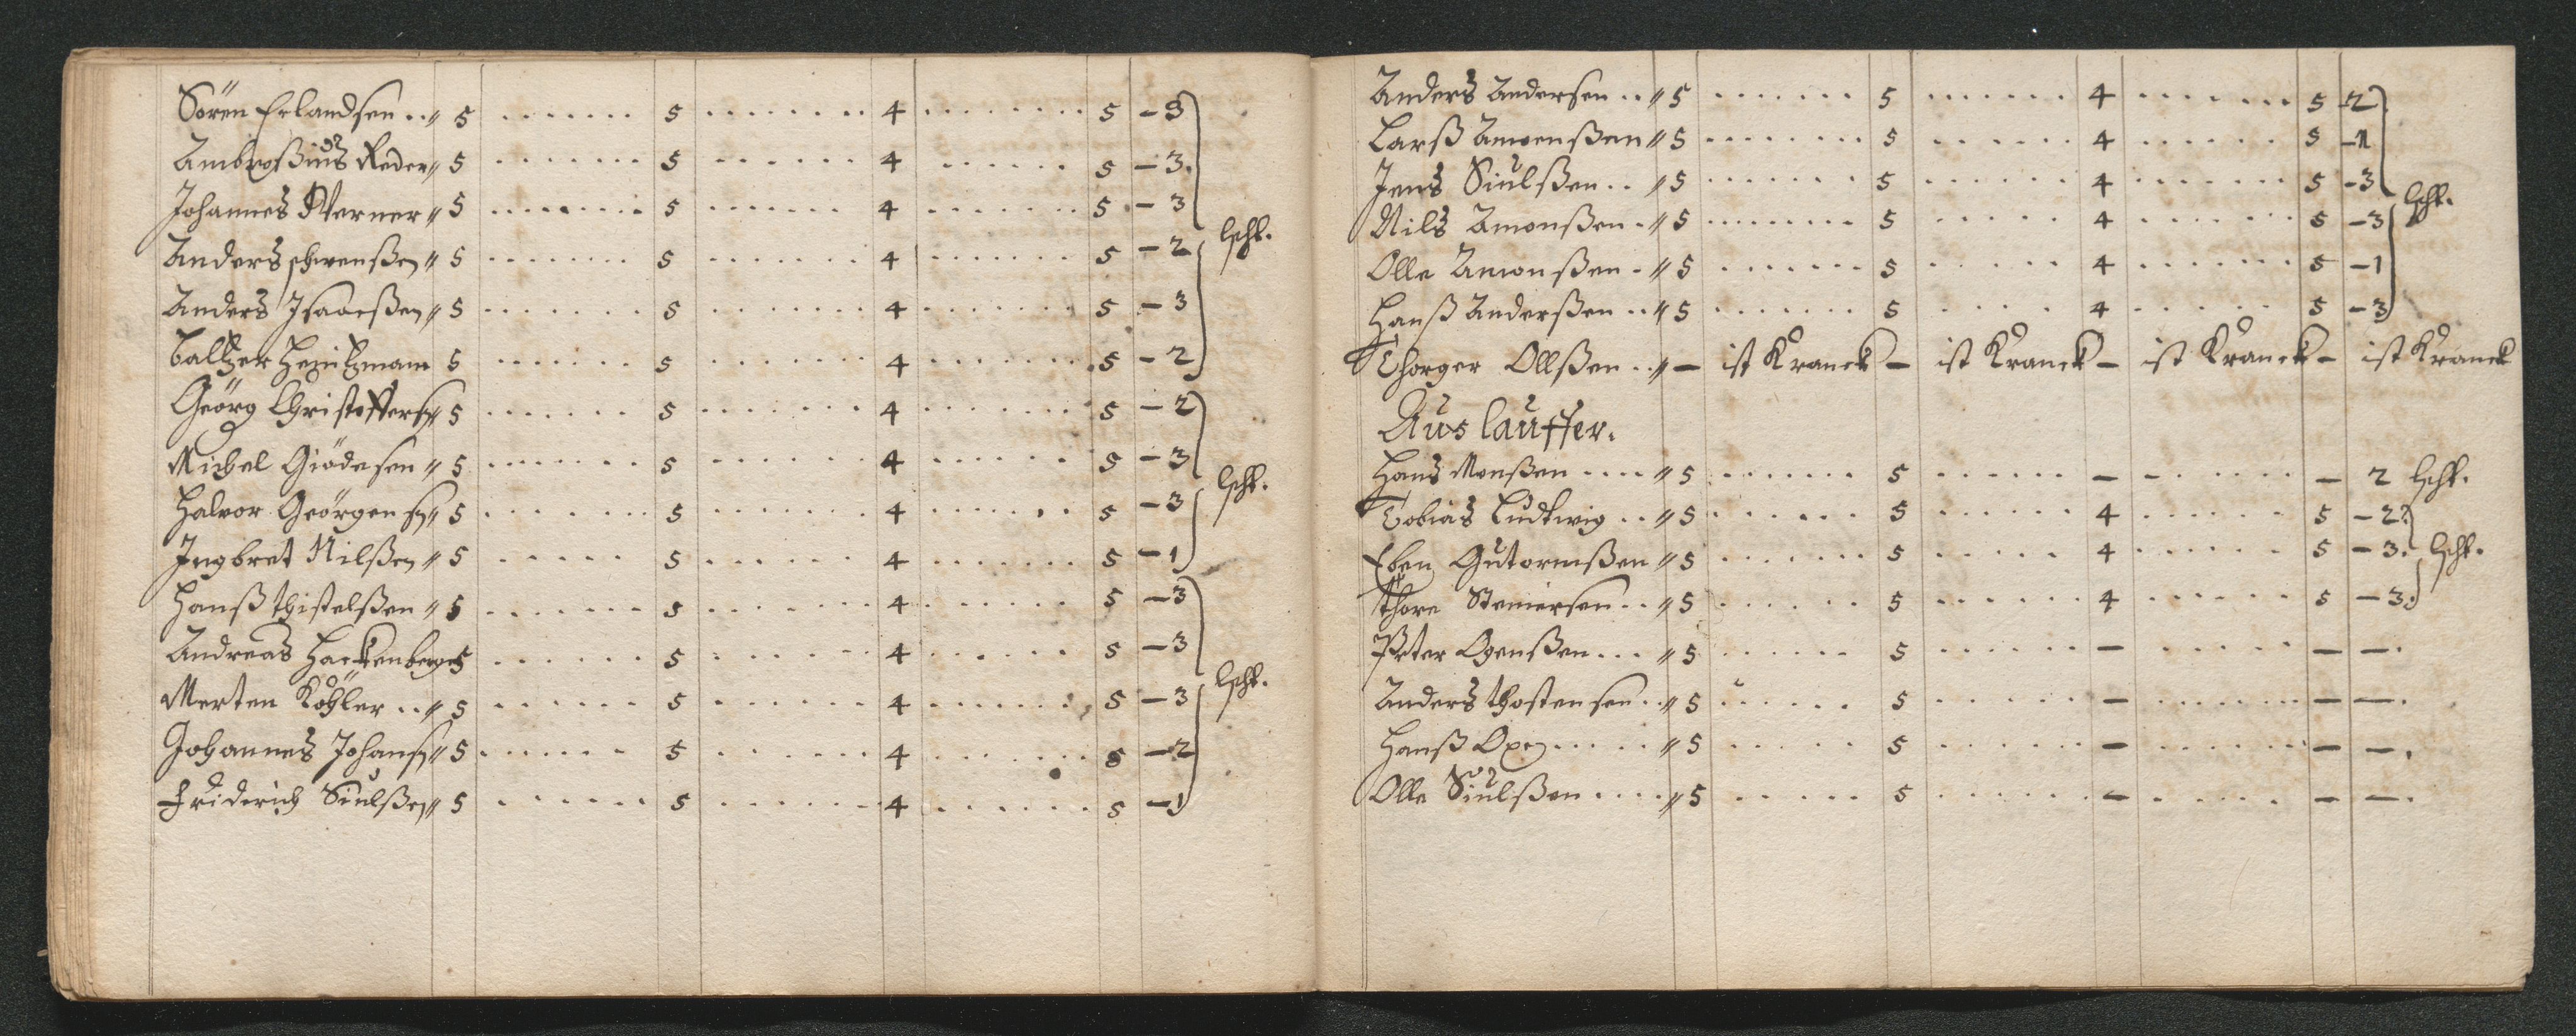 Sören Erlandsen .. " 5 ....... 5 ....... 4 ....... 5 - 3
Ambroßius Reder " 5 ....... 5 ...... 4 ...... 5 - 3.
Johannes Werner " 5 ....... 5 ....... 4 ....... 5 - 3
lschl.
Anders schwenßen " 5 ....... 5 ....... 4 ....... 5 - 2
Anders Isaacßen " 5 ....... 5 ....... 4 ....... 5 - 3
Baltzer Heintzmann 5 ....... 5 ....... 4 ....... 5 - 2
Geörg Christoffersen " 5 ....... 5 ....... 4 ....... 5 - 2
Michel Giödesen " 5 ....... 5 ....... 4 ...... 5 - 3
lschl.
Halvor Geörgensen " 5 ...... 5 ...... 4 ...... 5 - 3
Ingbret Nilßen " 5 ..... 5 ...... 4 ....... 5 - 1
Hanß thistelßen " 5 ....... 5 ....... 4 ...... 5 - 3
Andreas Hacktenberger 5 ...... 5 ...... 4 ...... 5 - 3
lschl.
Merten Köhler .. " 5 ...... 5 ...... 4 ....... 5 - 3
Johannes Johansen " 5 ...... 5 ...... 4 ...... 5 - 2
Friderich Siulßen " 5 ...... 5 ...... 4 ...... 5 - 1
Anders Andersen .. " 5 ....... 5 ...... 4 ....... 5 - 2.
Larß Amonßen " 5 ....... 5 ...... 4 ...... 5 - 1
Jens Siulßen .. " 5 ...... 5 ...... 4 ....... 5 - 3
lschl.
Nils Amonßen . " 5 ....... 5 ..... 4 ...... 5 - 3
Olle Amonßen . " 5 ...... 5 ..... 4 ....... 5 - 1
Hanß Anderßen .. " 5 ....... 5 .... 4 ..... 5 - 3
Thorger Ollßen .. " - ist Kranck - ist Kranck - ist Kranck - ist Kranck
Aus lauffer.
Hans Monßen .... " 5 ...... 5 ...... - ...... - 2 lschl.
Tobias Ludtwig .. " 5 ...... 5 ...... 4 ...... 5 - 2.
Eben Gutormßen " 5 ...... 5 ...... 4 ...... 5 - 3. lschl.
Thore Stenersen .. " 5 ...... 5 ...... 4 ...... 5 - 3.
Peter Ogenßen ... " 5 ...... 5 ...... - ..... - -.
Anders thostensen .. " 5 ...... 5 ...... - ...... - -.
Hanß Oxen ..... " 5 ..... 5 ...... - ...... - -.
Olle Siulßen .... " 5 ..... 5 ...... - ..... - -.